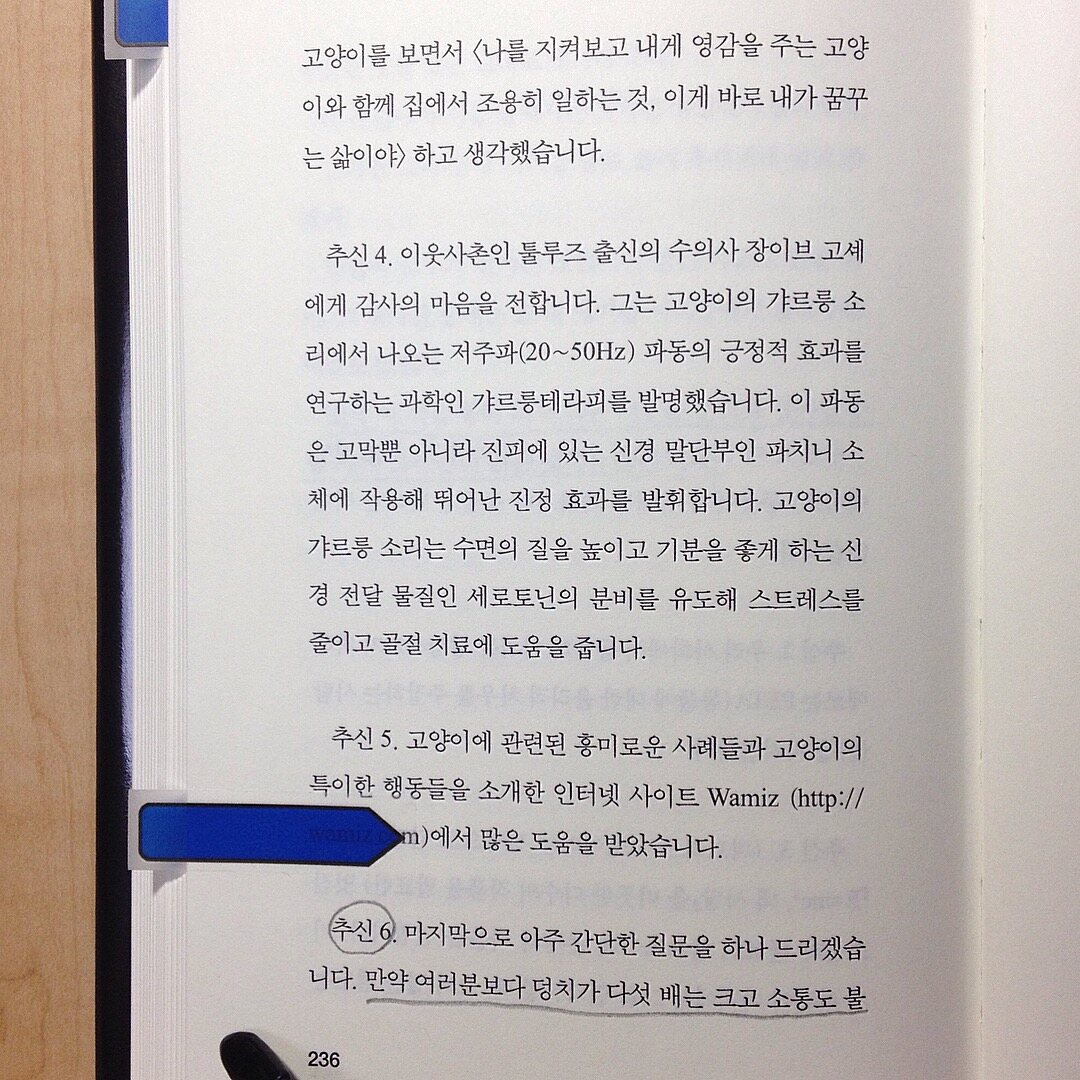 고양이를 보면서 〈나를 지켜보고 내게 영감을 주는 고양
이와 함께 집에서 조용히 일하는 것, 이게 바로 내가 꿈꾸
는 삶이야〉 하고 생각했습니다.
추신 4. 이웃사촌인 툴루즈 출신의 수의사 장이브 고셰
에게 감사의 마음을 전합니다. 그는 고양이의 갸르릉 소
리에서 나오는 저주파(20~50Hz) 파동의 긍정적 효과를
연구하는 과학인 갸르릉테라피를 발명했습니다. 이 파동
은 고막뿐 아니라 진피에 있는 신경 말단부인 파치니 소
체에 작용해 뛰어난 진정 효과를 발휘합니다. 고양이의
갸르릉 소리는 수면의 질을 높이고 기분을 좋게 하는 신
경 전달 물질인 세로토닌의 분비를 유도해 스트레스를
줄이고 골절 치료에 도움을 줍니다.
추신 5. 고양이에 관련된 흥미로운 사례들과 고양이의
특이한 행동들을 소개한 인터넷 사이트 Wamiz (http://
wamiz.com)에서 많은 도움을 받았습니다.
추신 6. 마지막으로 아주 간단한 질문을 하나 드리겠습
니다. 만약 여러분보다 덩치가 다섯 배는 크고 소통도 불
236